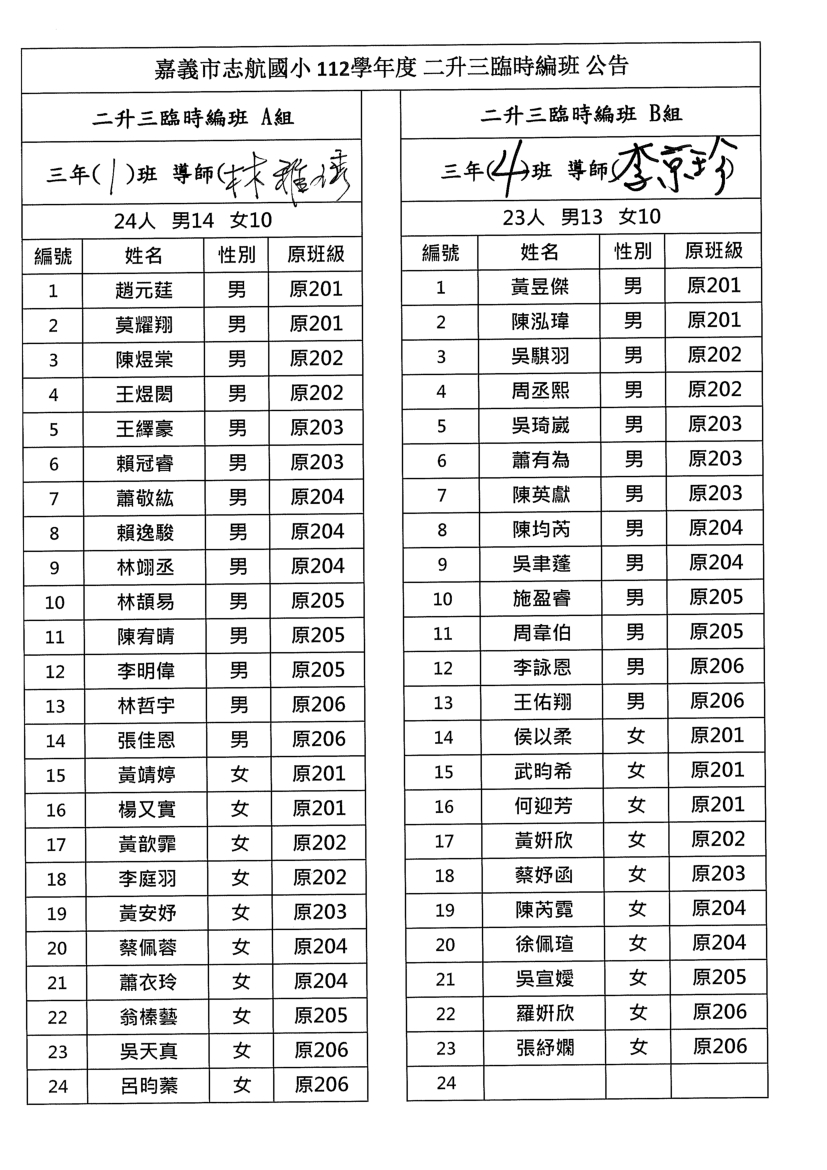 嘉義市志航國小 112學年度 二升三臨時編班 公告
二升三臨時編班 A組
三年(1)班 導師(林雅
24人 男14 女10
編號 姓名 性別 原班級
1 趙元莛 男 原201
2 莫耀翔 男 原201
3 陳煜棠 男 原202
4 王煜閎 男 原202
5 王繹豪 男 原203
6 賴冠睿 男 原203
7 蕭敬紘 男 原204
8 賴逸駿 男 原204
9 林翊丞 男 原204
10 林頡易 男 原205
11 陳宥晴 男 原205
12 李明偉 男 原205
13 林哲宇 男 原206
14 張佳恩 男 原206
15 黃靖婷 女 原201
16 楊又實 女 原201
17 黃歆霏 女 原202
18 李庭羽 女 原202
19 黃安妤 女 原203
20 蔡佩蓉 女 原204
21 蕭衣玲 女 原204
22 翁榛藝 女 原205
23 吳天真 女 原206
24 呂昀蓁 女 原206
二升三臨時編班 B組
三年(4)班 導師(李京珍)
23人 男13 女10
編號 姓名 性別 原班級
1 黃昱傑 男 原201
2 陳泓瑋 男 原201
3 吳騏羽 男 原202
4 周丞熙 男 原202
5 吳琦崴 男 原203
6 蕭有為 男 原203
7 陳英獻 男 原203
8 陳均芮 男 原204
9 吳聿蓬 男 原204
10 施盈睿 男 原205
11 周韋伯 男 原205
12 李詠恩 男 原206
13 王佑翔 男 原206
14 侯以柔 女 原201
15 武昀希 女 原201
16 何迎芳 女 原201
17 黃姸欣 女 原202
18 蔡妤函 女 原203
19 陳芮霓 女 原204
20 徐佩瑄 女 原204
21 吳宣嬡 女 原205
22 羅姸欣 女 原206
23 張紓嫻 女 原206
24